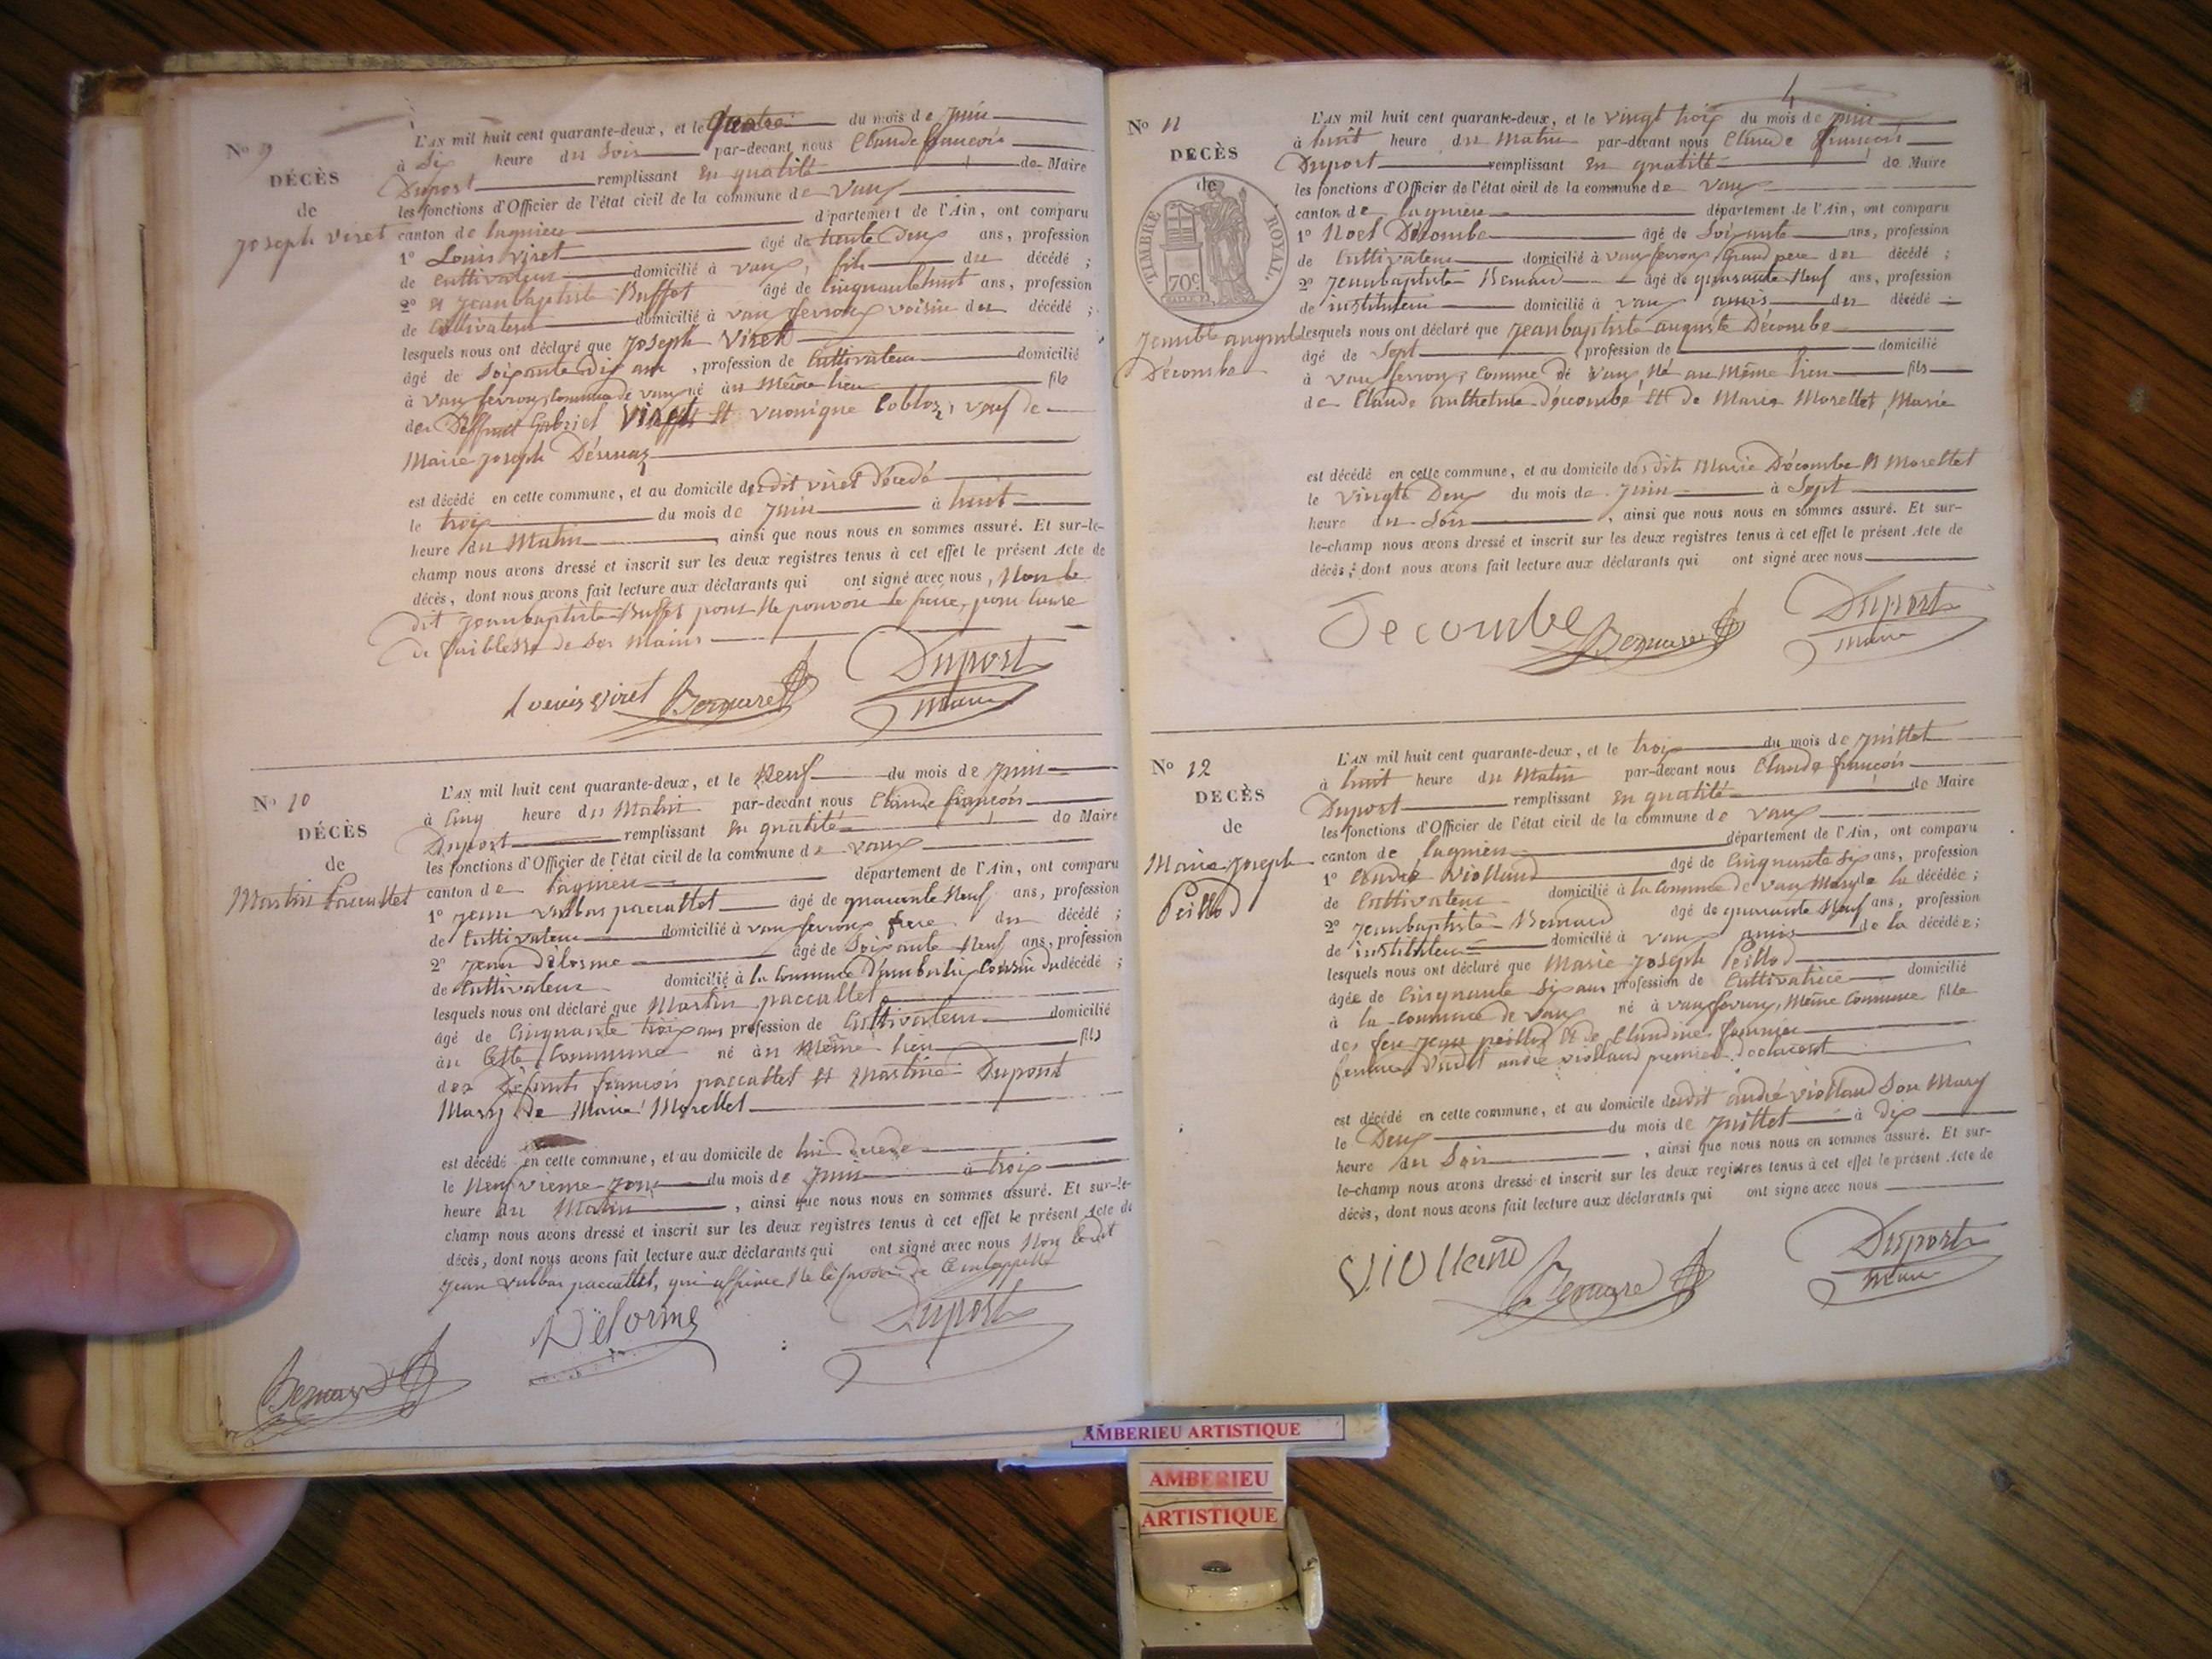 No 9
DÉCÈS
de
joseph viret
L'AN mil huit cent quarante-deux, et le quatre du mois de juin
à six heure du soir par-devant nous Claude françois
Duport remplissant en qualité de Maire
les fonctions d'Officier de l'état civil de la commune de vaux
canton de lagnieu département de l'Ain, ont comparu
1º Louis viret âgé de trente deux ans, profession
de cultivateur domicilié à vaux, fils du décédé ;
2º et jeanbaptiste Buffet âgé de cinquantehuit ans, profession
de cultivateur domicilié à vaux fevroux voisin du décédé ;
lesquels nous ont déclaré que joseph viret
âgé de soixante dix ans, profession de cultivateur domicilié
à vaux fevroux commune de vaux né au même lieu fils
des Deffunt Gabriel viret et vuonique Cobloz, veuf de
Marie joseph
est décédé en cette commune, et au domicile dudit viret décédé
le trois du mois de juin à huit
heure du Matin, ainsi que nous nous en sommes assuré. Et sur-le-
champ nous avons dressé et inscrit sur les deux registres tenus à cet effet le présent Acte de
décès, dont nous avons fait lecture aux déclarants qui ont signé avec nous, Non le
dit jeanbaptiste Buffet pour ne pouvoir le faire, pour cause
de faiblesse de ses mains
Louis viret Bernard Duport
Maire
No 10
DÉCÈS
de
Martin paccallet
L'AN mil huit cent quarante-deux, et le Neuf du mois de juin
à cinq heure du Matin par-devant nous Claude françois
Duport remplissant en qualité de Maire
les fonctions d'Officier de l'état civil de la commune de vaux
canton de lagnieu département de l'Ain, ont comparu
1º jean vulbas paccallet âgé de quarante Neuf ans, profession
de cultivateur domicilié à vaux fevroux frere du décédé ;
2º jean Délorme âgé de soixante Neuf ans, profession
de cultivateur domicilié à la Commune d'amberieu Cousin du décédé ;
lesquels nous ont déclaré que Martin paccallet
âgé de cinquante trois ans profession de cultivateur domicilié
au Cette Commune né au même lieu fils
des Défunts françois paccallet et Martine Dupont
Mary de Marie Morellet
est décédé en cette commune, et au domicile de lui décédé
le Neuvieme jour du mois de juin à trois
heure du Matin, ainsi que nous nous en sommes assuré. Et sur-le-
champ nous avons dressé et inscrit sur les deux registres tenus à cet effet le présent Acte de
décès, dont nous avons fait lecture aux déclarants qui ont signé avec nous Non ledit
jean vulbas paccallet, qui affirme Ne le savoir de
Délorme Duport
Bernard
4
No 11
DÉCÈS
de
TIMBRE ROYAL
70c
jeanbte auguste
Décombe
L'AN mil huit cent quarante-deux, et le vingt trois du mois de juin
à huit heure du Matin par-devant nous Claude françois
Duport remplissant en qualité de Maire
les fonctions d'Officier de l'état civil de la commune de vaux
canton de lagnieu département de l'Ain, ont comparu
1º Noel Décombe âgé de soixante ans, profession
de cultivateur domicilié à vaux fevroux, Grand pere du décédé ;
2º jeanbaptiste Bernard âgé de quarante Neuf ans, profession
de instituteur domicilié à vaux amis du décédé ;
lesquels nous ont déclaré que jeanbaptiste auguste Décombe
âgé de sept profession de domicilié
à vaux fevroux, Commune de vaux, Né au Même lieu fils
de Claude anthelme Décombe et de Marie Morellet, Marié
est décédé en cette commune, et au domicile desdits Marie Décombe et Morellet
le vingt Deux du mois de juin à sept
heure du soir, ainsi que nous nous en sommes assuré. Et sur-
le-champ nous avons dressé et inscrit sur les deux registres tenus à cet effet le présent Acte de
décès ; dont nous avons fait lecture aux déclarants qui ont signé avec nous
Decombe Bernard Duport
maire
No 12
DÉCÈS
de
Marie joseph
Peillod
L'AN mil huit cent quarante-deux, et le trois du mois de juillet
à huit heure du Matin par-devant nous Claude françois
Duport remplissant en qualité de Maire
les fonctions d'Officier de l'état civil de la commune de vaux
canton de lagnieu département de l'Ain, ont comparu
1º andré violland âgé de cinquante six ans, profession
de cultivateur domicilié à la Commune de vaux Mary de la décédée ;
2º jeanbaptiste Bernard âgé de quarante Neuf ans, profession
de instituteur domicilié à vaux amis de la décédée ;
lesquels nous ont déclaré que Marie joseph Peillod
âgée de cinquante six ans profession de Cultivatrice domicilié
à la Commune de vaux né à vaux fevroux, Même Commune fille
des feu jean peillod et de Claudine
femme dudit andré violland premier déclarant
est décédé en cette commune, et au domicile dudit andré violland son Mary
le Deux du mois de juillet à dix
heure du soir, ainsi que nous nous en sommes assuré. Et sur-
le-champ nous avons dressé et inscrit sur les deux registres tenus à cet effet le présent Acte de
décès, dont nous avons fait lecture aux déclarants qui ont signé avec nous
Violland Bernard Duport
Maire
AMBERIEU ARTISTIQUE
AMBERIEU
ARTISTIQUE